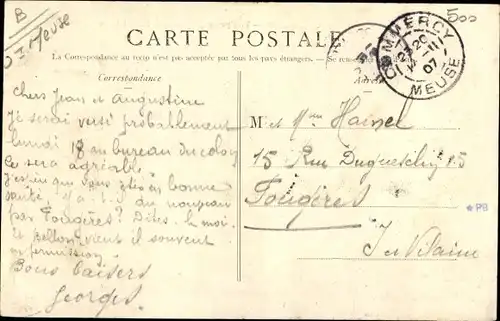 B
D. Meuse
500
CARTE POSTALE
La Correspondance au recto n'est pas acceptée par tous les pays étrangers. — Se
Correspondance
COMMERCY
20
11
07
MEUSE
Chers Jean et Augustine
Je serai versé probablement
lundi 18 au bureau du colon
ce sera agréable.
J'espère que vous êtes en bonne
santé. Y a-t-il du nouveau
par Fougères? Dites le moi.
Le vient il souvent
en permission
Bons baisers
Georges
M et Mme
15 Rue Duguesclin 15
Fougères
I et Vilaine
PB